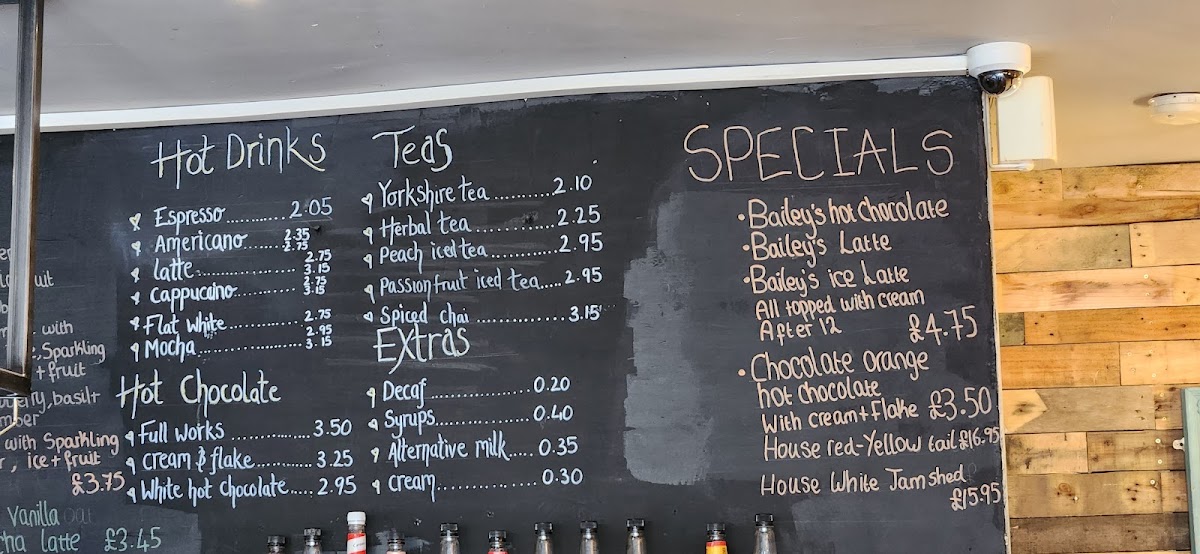 with
Sparkling
+ fruit
basil+
with Sparkling
, ice + fruit
£3.75
Vanilla oat
latte £3.45
Hot Drinks
Espresso............ 2.05
Americano....... 2.35
2.75
Latte................... 2.75
3.15
Cappucino............ 2.75
3.15
Flat White.............. 2.75
Mocha.................... 2.95
3.15
Hot Chocolate
Full works .............. 3.50
cream & flake............ 3.25
White hot chocolate..... 2.95
Teas
Yorkshire tea ......... 2.10
Herbal tea.............. 2.25
Peach iced tea............. 2.95
Passionfruit iced tea..... 2.95
Spiced chai ................ 3.15
Extras
Decaf.................. 0.20
Syrups.................. 0.40
Alternative milk..... 0.35
cream................... 0.30
SPECIALS
• Bailey's hot chocolate
• Bailey's Latte
• Bailey's ice Latte
All topped with cream
After 12 £4.75
• Chocolate orange
hot chocolate
With cream + Flake £3.50
House red-Yellow tail £16.95
House White Jam shed
£15.95